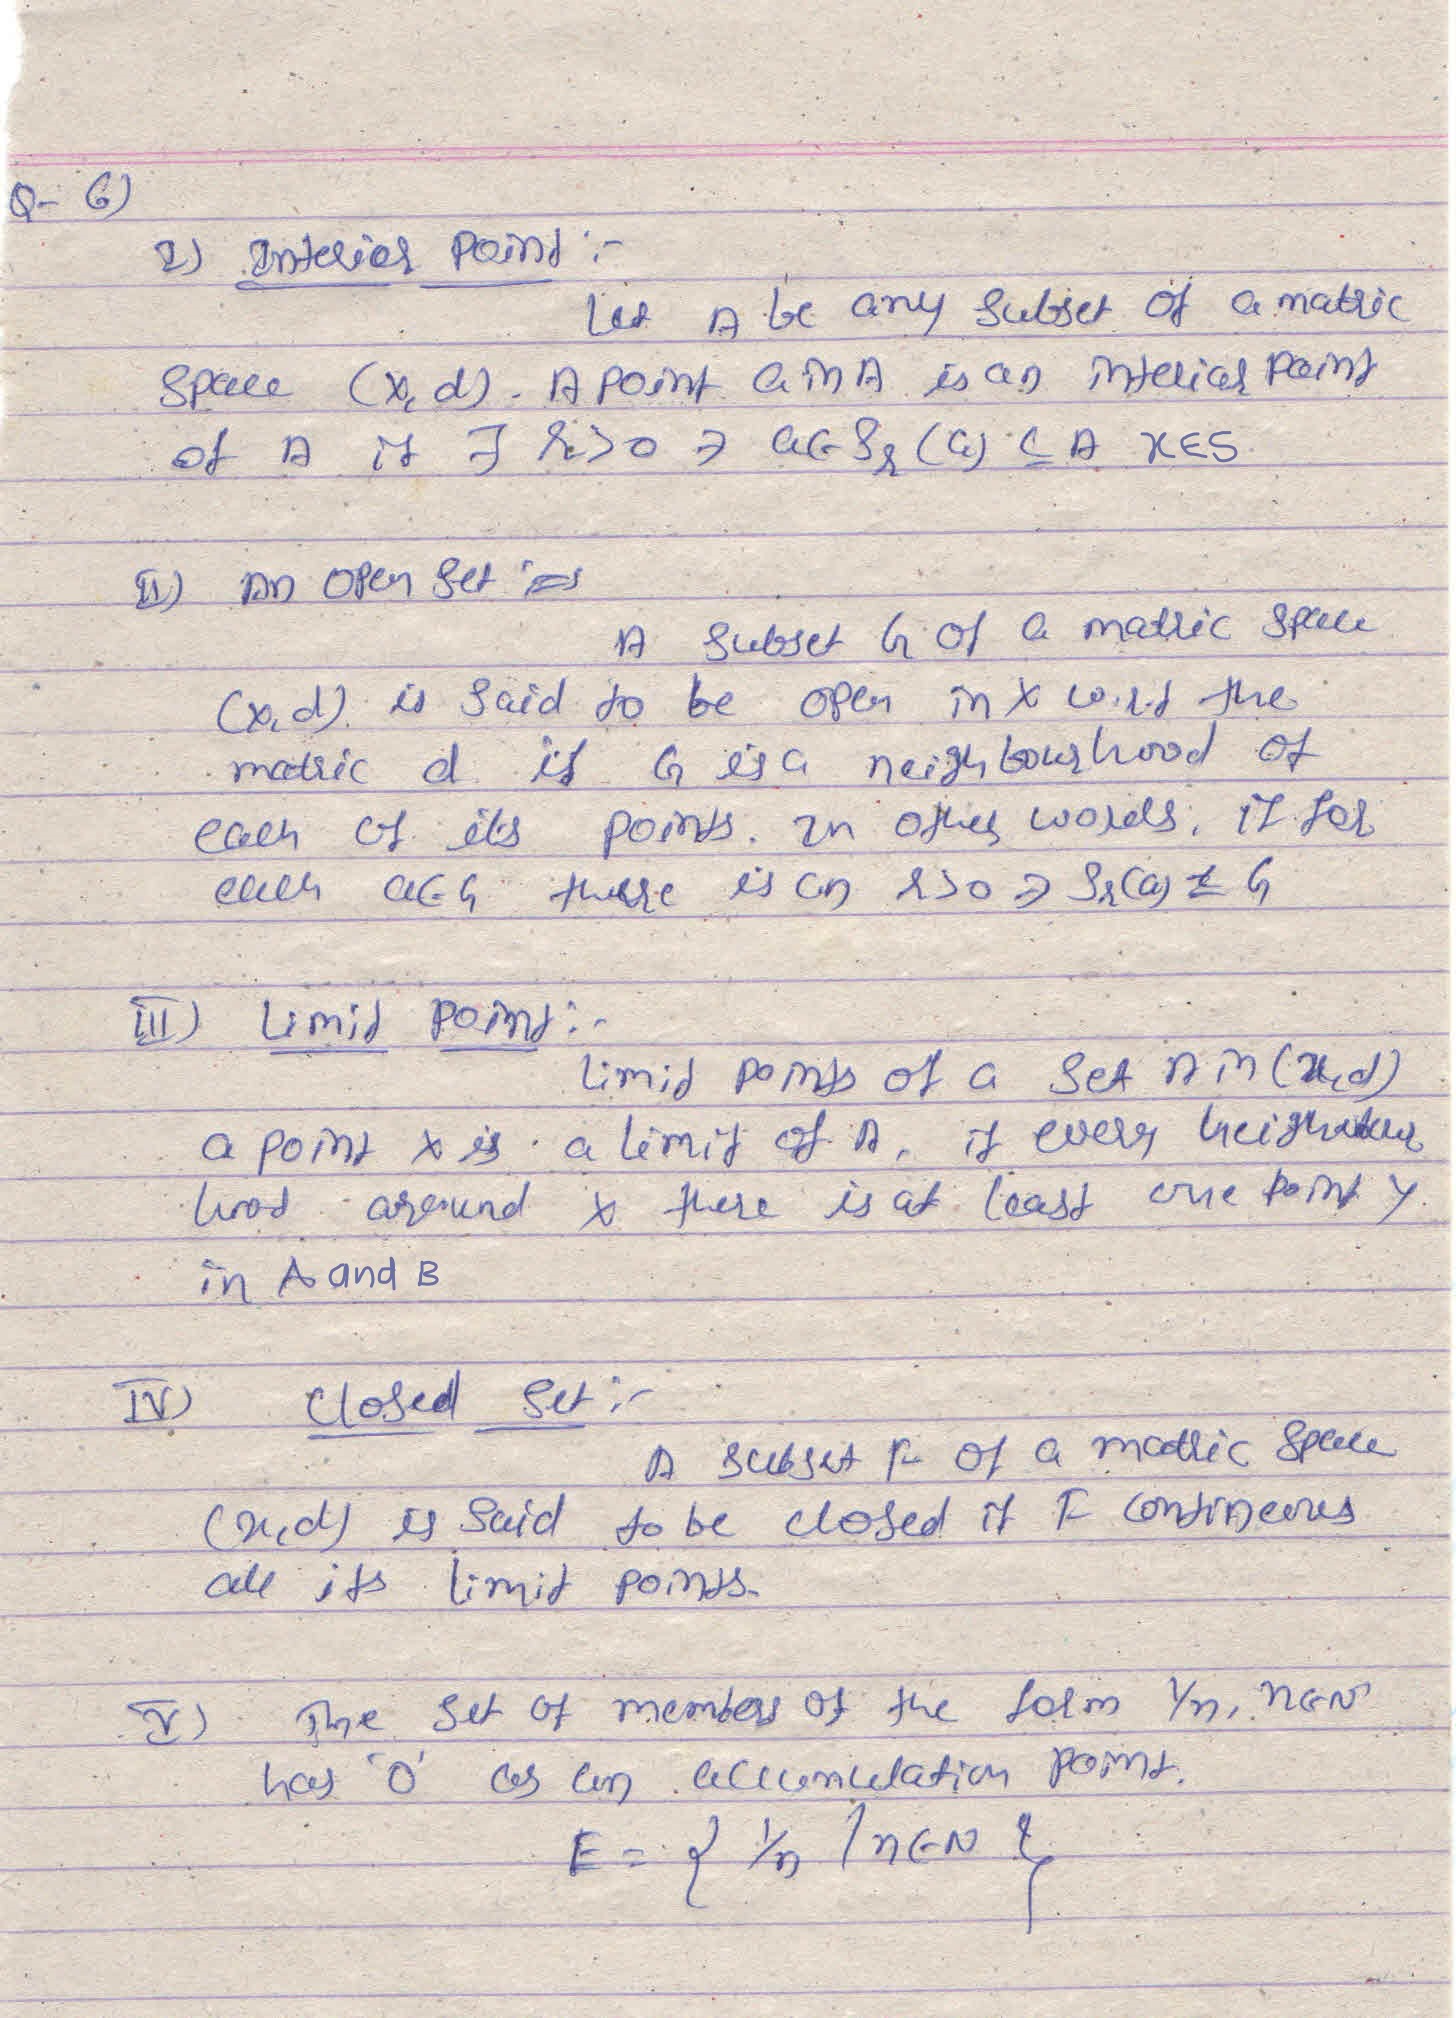 Q- 6)
I) Interior Point :-
Let A be any subset of a matric
space (x, d). A point a in A is an interior point
of A if ∃ r>0 ∋ a∈Sr(a) ⊆ A x∈S
II) An open set :-
A subset G of a matric space
(x, d) is said to be open in x w.r.t the
matric d if G is a neighbourhood of
each of its points. In other words, if for
each a∈G there is an r>0 ∋ Sr(a) ⊆ G
III) Limit Point :-
limit points of a set A in (x, d)
a point x is a limit of A, if every neighbour
hood around x there is at least one point y
in A and B
IV) Closed Set :-
A subset F of a matric space
(x, d) is said to be closed if F
all its limit points.
V) The set of members of the form 1/n, n∈N
has '0' as an accumulation point.
E = { 1/n / n∈N }